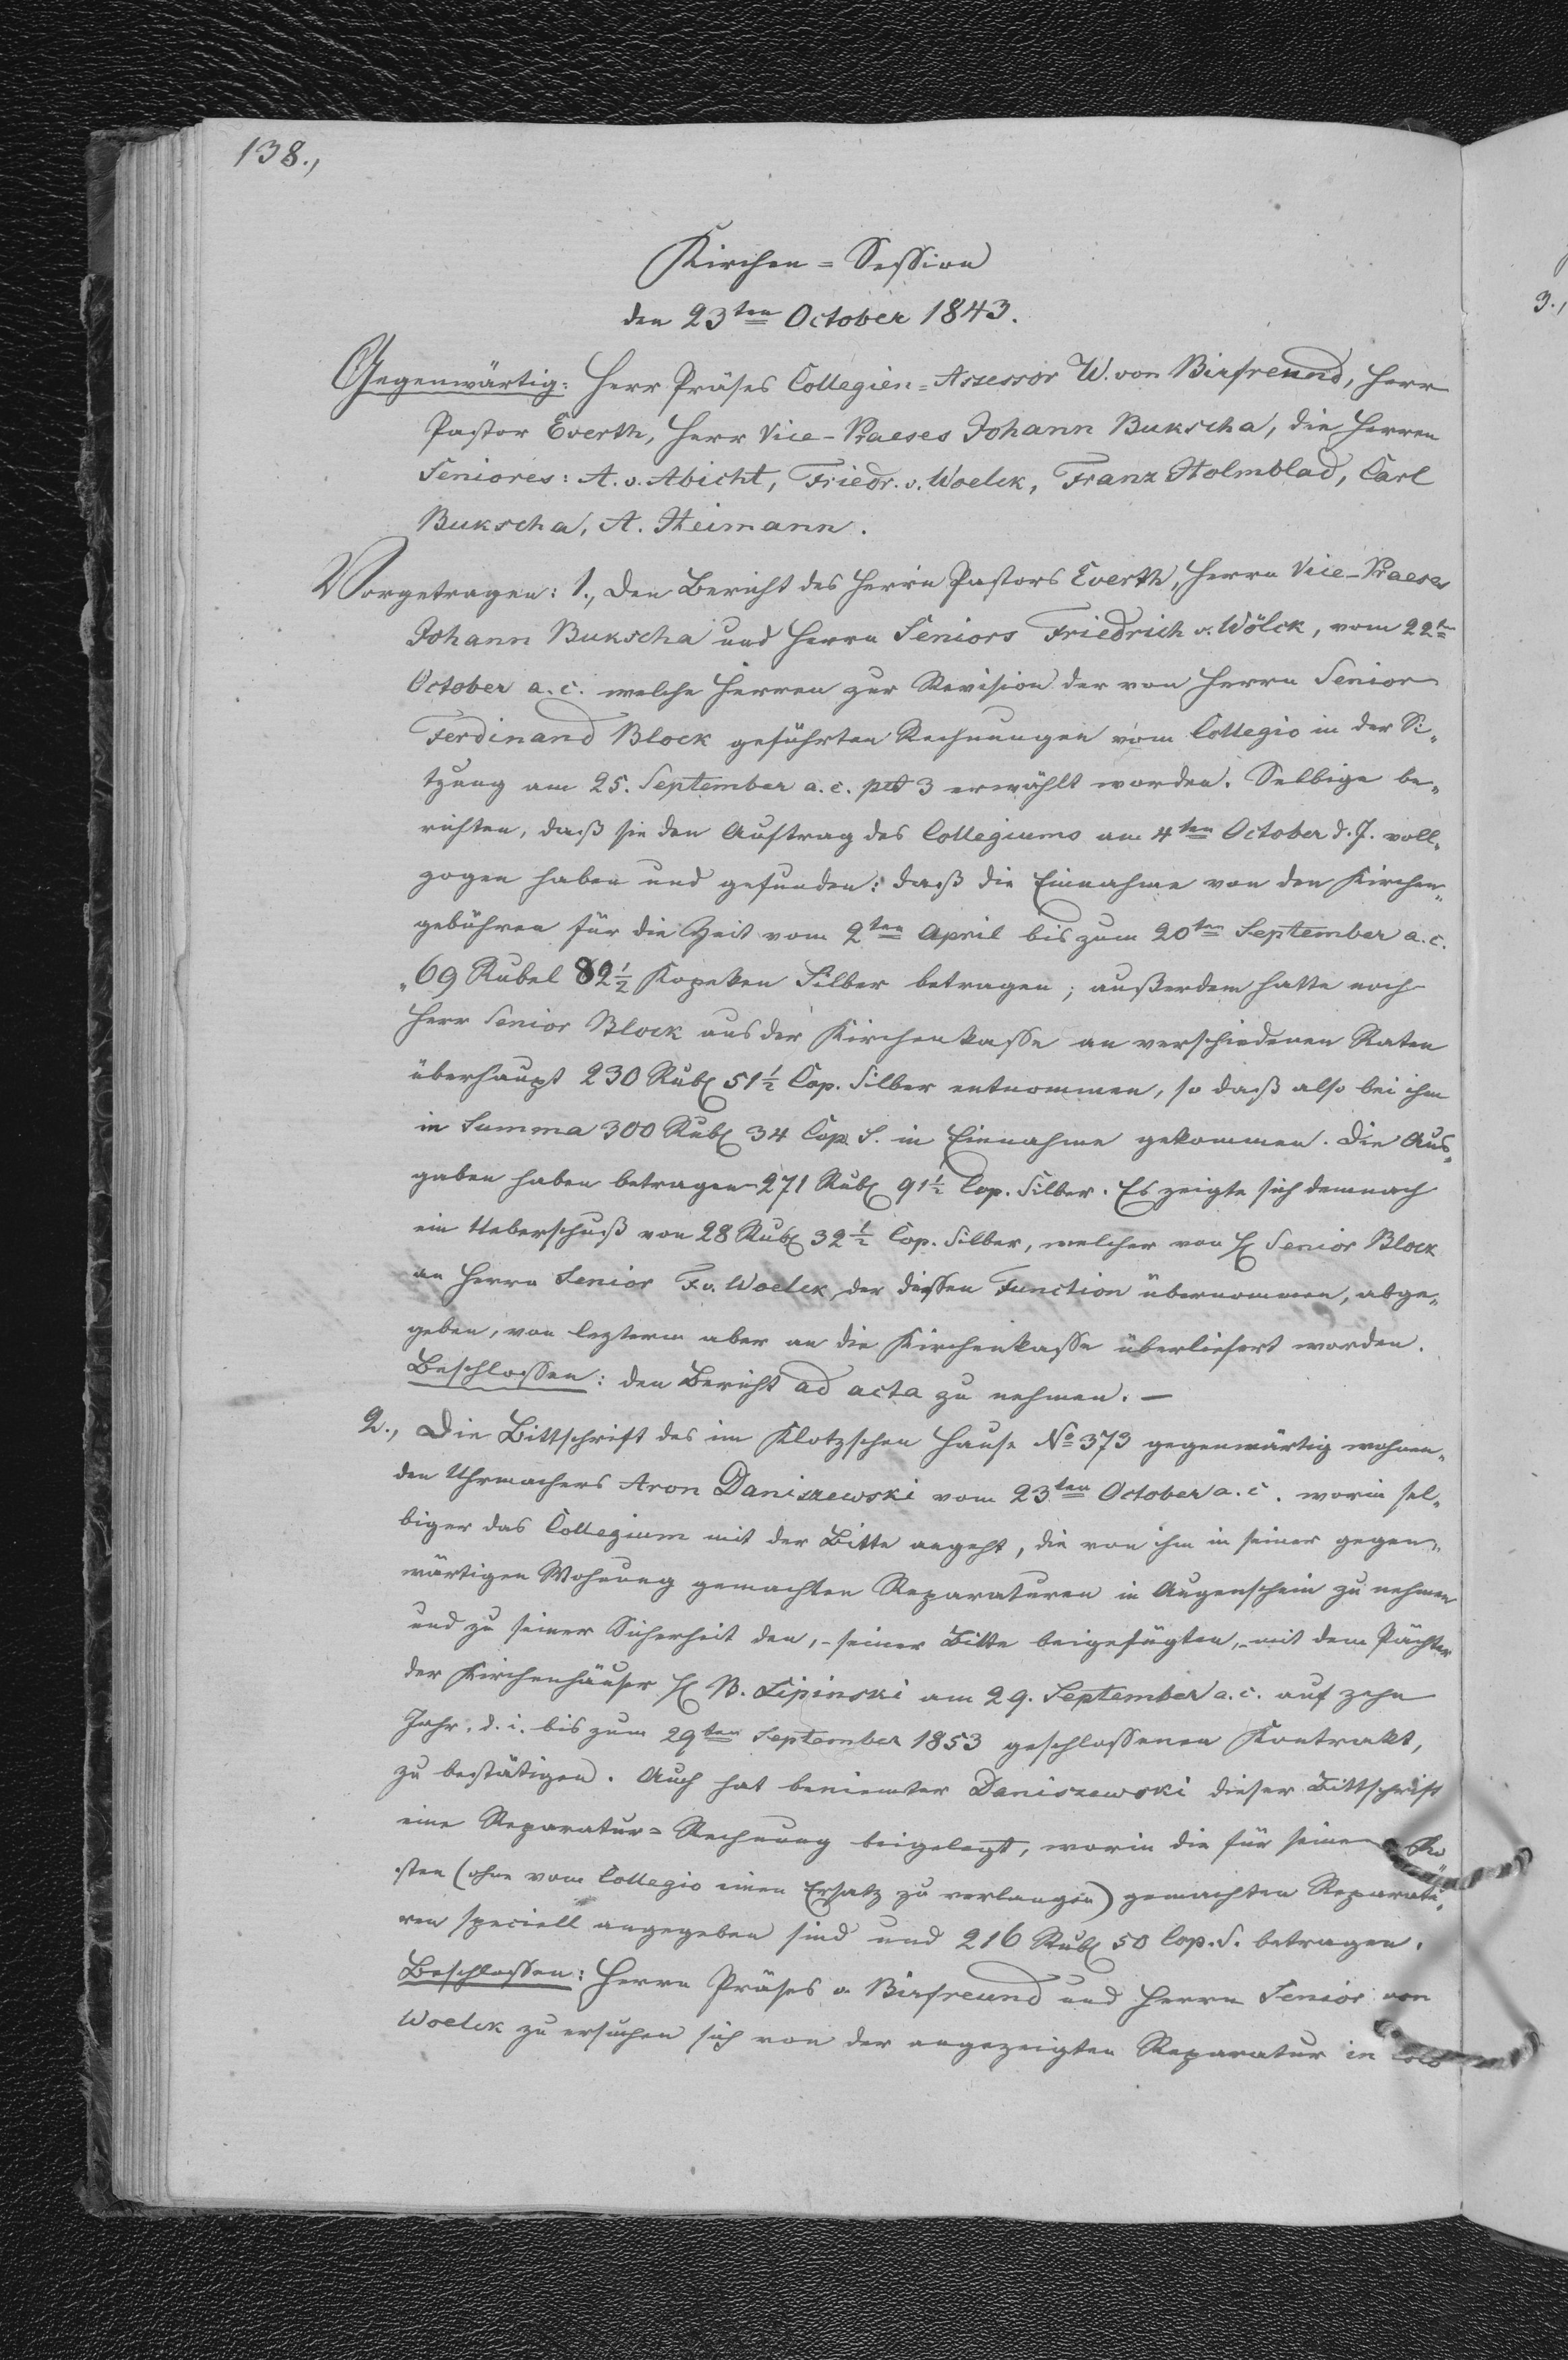 138.,
Kirchen=Session
den 23ten October 1843.
Gegenwärtig: Herr Präses Collegien=Assessor W. von Birfreund, Herr
Pastor Everth, Herr Vice-Praeses Johann Bukscha, die Herren
Seniores: A. v. Abicht, Friedr. v. Woelck, Franz Holmblad, Carl
Bukscha, A. Heimann.
Vorgetragen: 1., Den Bericht des Herrn Pastors Everth, Herrn Vice-Praeses
Johann Bukscha und Herrn Seniors Friedrich v. Wölck, vom 22ten
October a. c. welche Herren zur Revision der von Herrn Senior
Ferdinand Block geführten Rechnungen vom Collegio in der Si„
tzung am 25. September a. c. pct 3 erwählt worden. Selbige be„
richten, daß sie den Auftrag des Collegiums am 4ten October d. J. voll„
zogen haben und gefunden: daß die Einnahme von den Kirchen„
gebühren für die Zeit vom 2ten April bis zum 20ten September a. c.
„69 Rubel 82½ Kopeken Silber betragen; außerdem hatte noch
Herr Senior Block aus der Kirchenkasse an verschiedenen Raten
überhaupt 230 Rub. 51½ Cop. Silber entnommen, so daß also bei ihm
in Summa 300 Rub. 34 Cop. S. in Einnahme gekommen. Die Aus„
gaben haben betragen 271 Rub. 91½ Cop. Silber. Es zeigte sich demnach
ein Ueberschuß von 28 Rub. 32½ Cop. Silber, welcher von H. Senior Block
an Herrn Senior F. v. Woelck, der dessen Function übernommen, abge„
geben, von lezterm aber an die Kirchenkasse überliefert worden.
Beschlossen: den Bericht ad acta zu nehmen. —
2., Die Bittschrift des im Klotzschen Hause No 373 gegenwärtig wohnen„
den Uhrmachers Aron Daniszewski vom 23ten October a. c. worin sel„
biger das Collegium mit der Bitte angeht, die von ihm in seiner gegen„
wärtigen Wohnung gemachten Reparaturen in Augenschein zu nehmen
und zu seiner Sicherheit den, - seiner Bitte beigefügten, - mit dem Pächter
der Kirchenhäuser H. B. Lipinski am 29. September a. c. auf zehn
Jahr. d. i. bis zum 29ten September 1853 geschlossenen Kontrakt,
zu bestätigen. Auch hat beniemter Daniszewski dieser Bittschrift
eine Reparatur=Rechnung beigelegt, worin die für seine Ko„
sten (ohne vom Collegio einen Ersatz zu verlangen) gemachten Reparatu„
ren speciell angegeben sind und 216 Rub. 50 Cop. S. betragen.
Beschlossen: Herrn Präses v. Birfreund und Herrn Senior von
Woelck zu ersuchen sich von der angezeigten Reparatur in
3.,